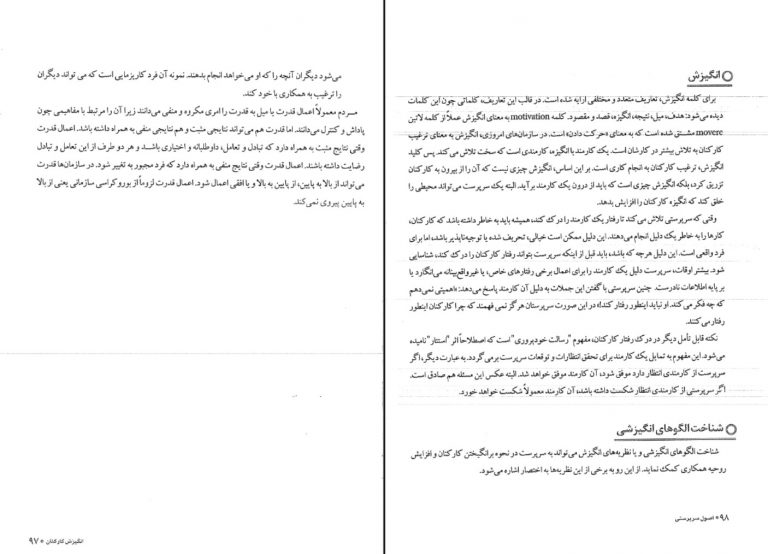 می‌شود دیگران آنچه را که او می‌خواهد انجام بدهند. نمونه آن فرد کاریزمایی است که می تواند دیگران
را ترغیب به همکاری با خود کند.
مردم معمولاً اعمال قدرت یا میل به قدرت را امری مکروه و منفی می‌دانند زیرا آن را مرتبط با مفاهیمی چون
پاداش و کنترل می‌دانند. اما قدرت هم می‌تواند نتایجی مثبت و هم نتایجی منفی به همراه داشته باشد. اعمال قدرت
وقتی نتایج مثبت به همراه دارد که تبادل و تعامل، داوطلبانه و اختیاری باشند و هر دو طرف از این تعامل و تبادل
رضایت داشته باشند. اعمال قدرت وقتی نتایج منفی به همراه دارد که فرد مجبور به تغییر شود. در سازمان‌ها قدرت
می‌تواند از بالا به پایین، از پایین به بالا و یا افقی اعمال شود. اعمال قدرت لزوماً از بوروکراسی سازمانی یعنی از بالا
به پایین پیروی نمی‌کند.
انگیزش کارکنان * ۹۷
انگیزش
برای کلمه انگیزش، تعاریف متعدد و مختلفی ارایه شده است. در قالب این تعاریف، کلماتی چون این کلمات
دیده می‌شود: هدف، میل، نتیجه، انگیزه، قصد و مقصود. کلمه motivation به معنای انگیزش عملاً از کلمه لاتین
movere مشتق شده است که به معنای «حرکت دادن» است. در سازمان‌های امروزی، انگیزش به معنای ترغیب
کارکنان به تلاش بیشتر در کارشان است. یک کارمند با انگیزه، کارمندی است که سخت تلاش می کند. پس کلید
انگیزش، ترغیب کارکنان به انجام کاری است. بر این اساس، انگیزش چیزی نیست که آن را از بیرون به کارکنان
تزریق کرد، بلکه انگیزش چیزی است که باید از درون یک کارمند برآید. البته یک سرپرست می تواند محیطی را
خلق کند که انگیزه کارکنان را افزایش بدهد.
وقتی که سرپرستی تلاش می کند تا رفتار یک کارمند را درک کند، همیشه باید به خاطر داشته باشد که کارکنان،
کارها را به خاطر یک دلیل انجام می‌دهند. این دلیل ممکن است خیالی، تحریف شده یا توجیه‌ناپذیر باشد، اما برای
فرد واقعی است. این دلیل هرچه که باشد، باید قبل از اینکه سرپرست بتواند رفتار کارکنان را درک کند، شناسایی
شود. بیشتر اوقات، سرپرست دلیل یک کارمند را برای اعمال برخی رفتارهای خاص، یا غیرواقع‌بینانه می‌انگارد یا
بر پایه اطلاعات نادرست. چنین سرپرستی با گفتن این جملات به دلیل آن کارمند پاسخ می‌دهد: «اهمیتی نمی‌دهم
که چه فکر می‌کند. او نباید اینطور رفتار کند!» در این صورت سرپرستان هرگز نمی فهمند که چرا کارکنان اینطور
رفتار می‌کنند.
نکته قابل تأمل دیگر در درک رفتار کارکنان، مفهوم "رسالت خودپروری" است که اصطلاحاً اثر "استنتار" نامیده
می‌شود. این مفهوم به تمایل یک کارمند برای تحقق انتظارات و توقعات سرپرست برمی گردد. به عبارت دیگر، اگر
سرپرست از کارمندی انتظار دارد موفق شود، آن کارمند موفق خواهد شد. البته عکس این مسئله هم صادق است.
اگر سرپرستی از کارمندی انتظار شکست داشته باشد، آن کارمند معمولاً شکست خواهد خورد.
شناخت الگوهای انگیزشی
شناخت الگوهای انگیزشی و یا نظریه‌های انگیزش می‌تواند به سرپرست در نحوه برانگیختن کارکنان و افزایش
روحیه همکاری کمک نماید. از این رو به برخی از این نظریه‌ها به اختصار اشاره می‌شود.
۹۸ * اصول سرپرستی